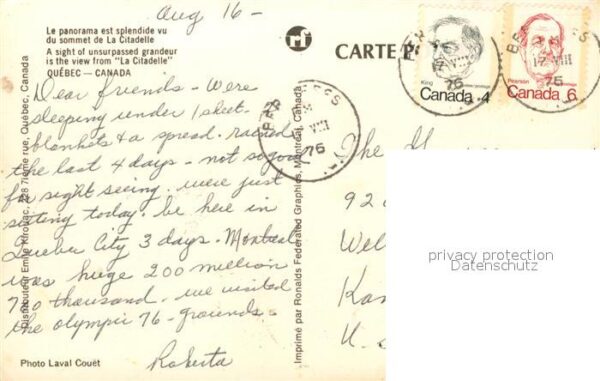 Aug 16 -
Le panorama est splendide vu
du sommet de La Citadelle
A sight of unsurpassed grandeur
is the view from "La Citadelle"
QUÉBEC — CANADA
Dear friends - Were
sleeping under 1 sheet -
blankets & a spread. rained
the last 4 days - not so good
for sight seeing. were just
sitting today. be here in
Quebec City 3 days. Montreal
was huge 200 million
700 thousand. we visited
the olympic 76 - grounds.
Roberta
Photo Laval Couët
Distributeur Émile Kirouac, 228 7ième rue, Québec, Canada
Imprimé par Ronalds Federated Graphics, Montréal, Canada
CARTE P
King
Canada 4
Pearson
Canada 6
17 VIII
76
VIII
76
The
92
Wel
Kan
U.
privacy protection
Datenschutz